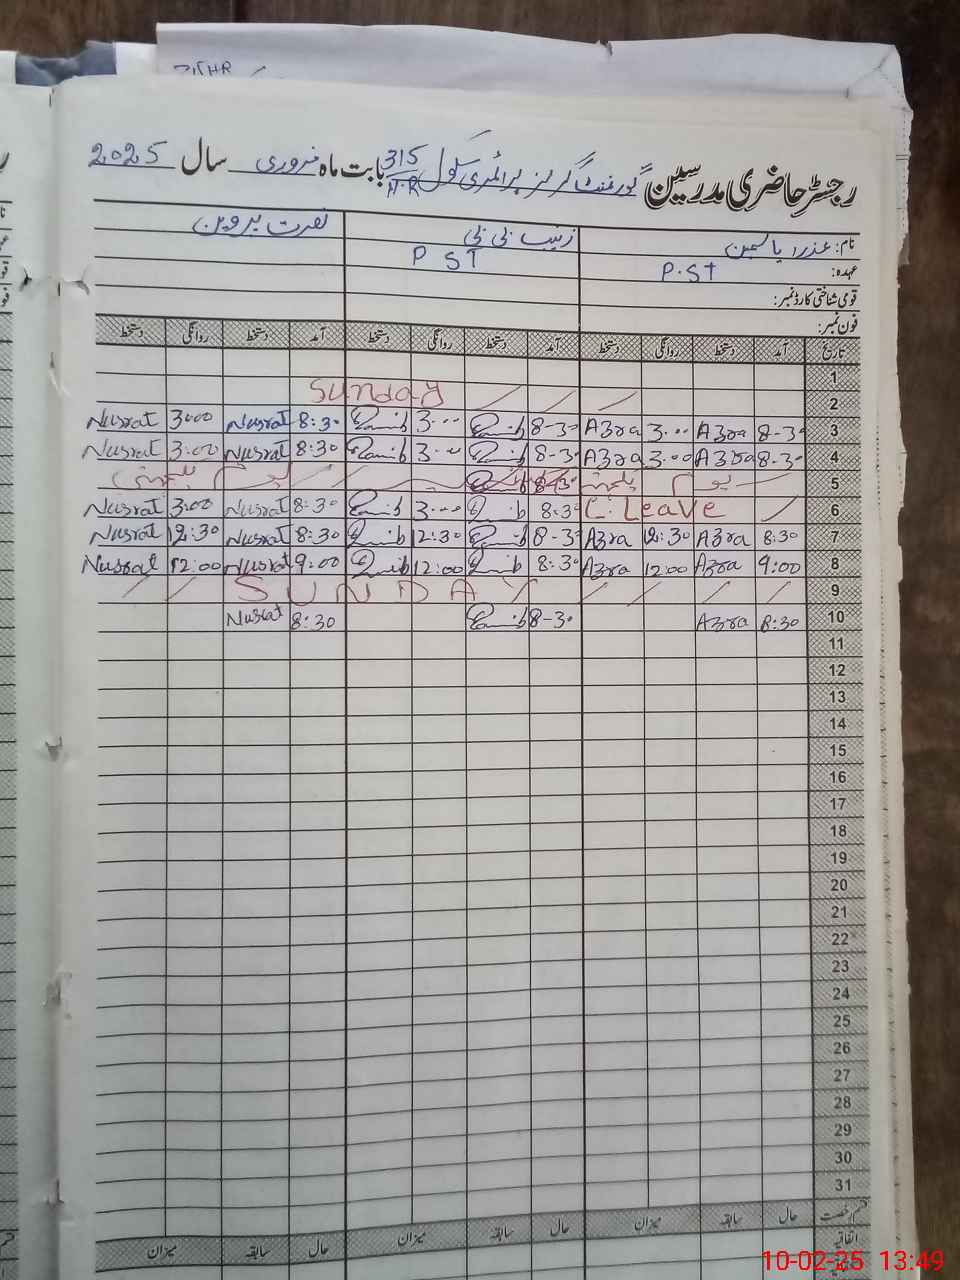 رجسٹر حاضری مدرسین گورنمنٹ گرلز پرائمری سکول 315 H-R بابت ماہ فروری سال 2025
نام: عذرا یاسمین زینب بی بی نصرت پروین
عہدہ: P.ST P ST
قومی شناختی کارڈ نمبر:
فون نمبر:
تاریخ آمد دستخط روانگی دستخط آمد دستخط روانگی دستخط آمد دستخط روانگی دستخط
1
2 Sunday
3 8-30 Azra 3.00 Azra 8-30 Zainib 3.00 Zainib 8:30 Nusrat 3:00 Nusrat
4 8-30 Azra 3.00 Azra 8-30 Zainib 3.00 Zainib 8:30 Nusrat 3:00 Nusrat
5 یوم یکجہتی 8-30 Zainib یوم یکجہتی
6 C. Leave 8:30 Zainib 3.00 Zainib 8:30 Nusrat 3:00 Nusrat
7 8:30 Azra 12:30 Azra 8-30 Zainib 12:30 Zainib 8:30 Nusrat 12:30 Nusrat
8 9:00 Azra 12:00 Azra 8:30 Zainib 12:00 Zainib 9:00 Nusrat 12:00 Nusrat
9 SUNDAY
10 8:30 Azra 8-30 Zainib 8:30 Nusrat
11
12
13
14
15
16
17
18
19
20
21
22
23
24
25
26
27
28
29
30
31
قسم رخصت حال سابقہ میزان حال سابقہ میزان حال سابقہ میزان
اتفاقیہ
10-02-25 13:49